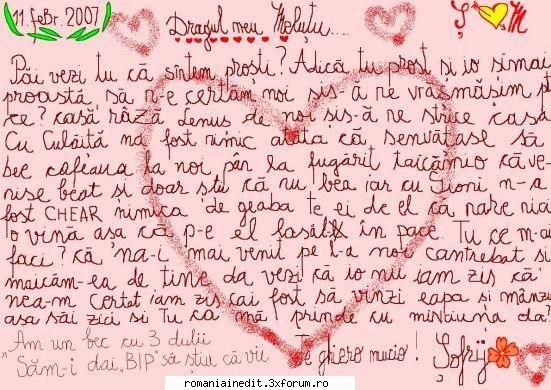 11. febr. 2007 Dragul meu Moluțu.... Ș M
Păi vezi tu că sîntem proști? Adică tu prost și io și mai
proastă, să n-e certăm noi sis-ă ne vrăsmăsim pt
ce? casă râză Lenus de noi sis-ă ne strice casa
Cu Culăită na fost nimic atâta că senvățase să
bee cafeaua la noi păn la fugărit taicămio că ve-
nise beat și doar știi că nu bea iar cu Gioni n-a
fost CHEAR nimica de geaba te ei de el că nare nici
o vină asa că p-e el lasăl în pace. Tu ce m-ai
faci? că na-i mai venit pe l-a noi cantrebat si
maicăm-ea de tine da vezi că io nu iam zis că
nea-m certat iam zis cai fost să vinzi eapa și mânzu
asa săi zici si Tu ca mă prinde cu minciuna da?
"Am un bec cu 3 dulii
Săm-i dai "BIP" să știu că vii" Te ghiero mucio! Șofrij
romaniainedit.3xforum.ro